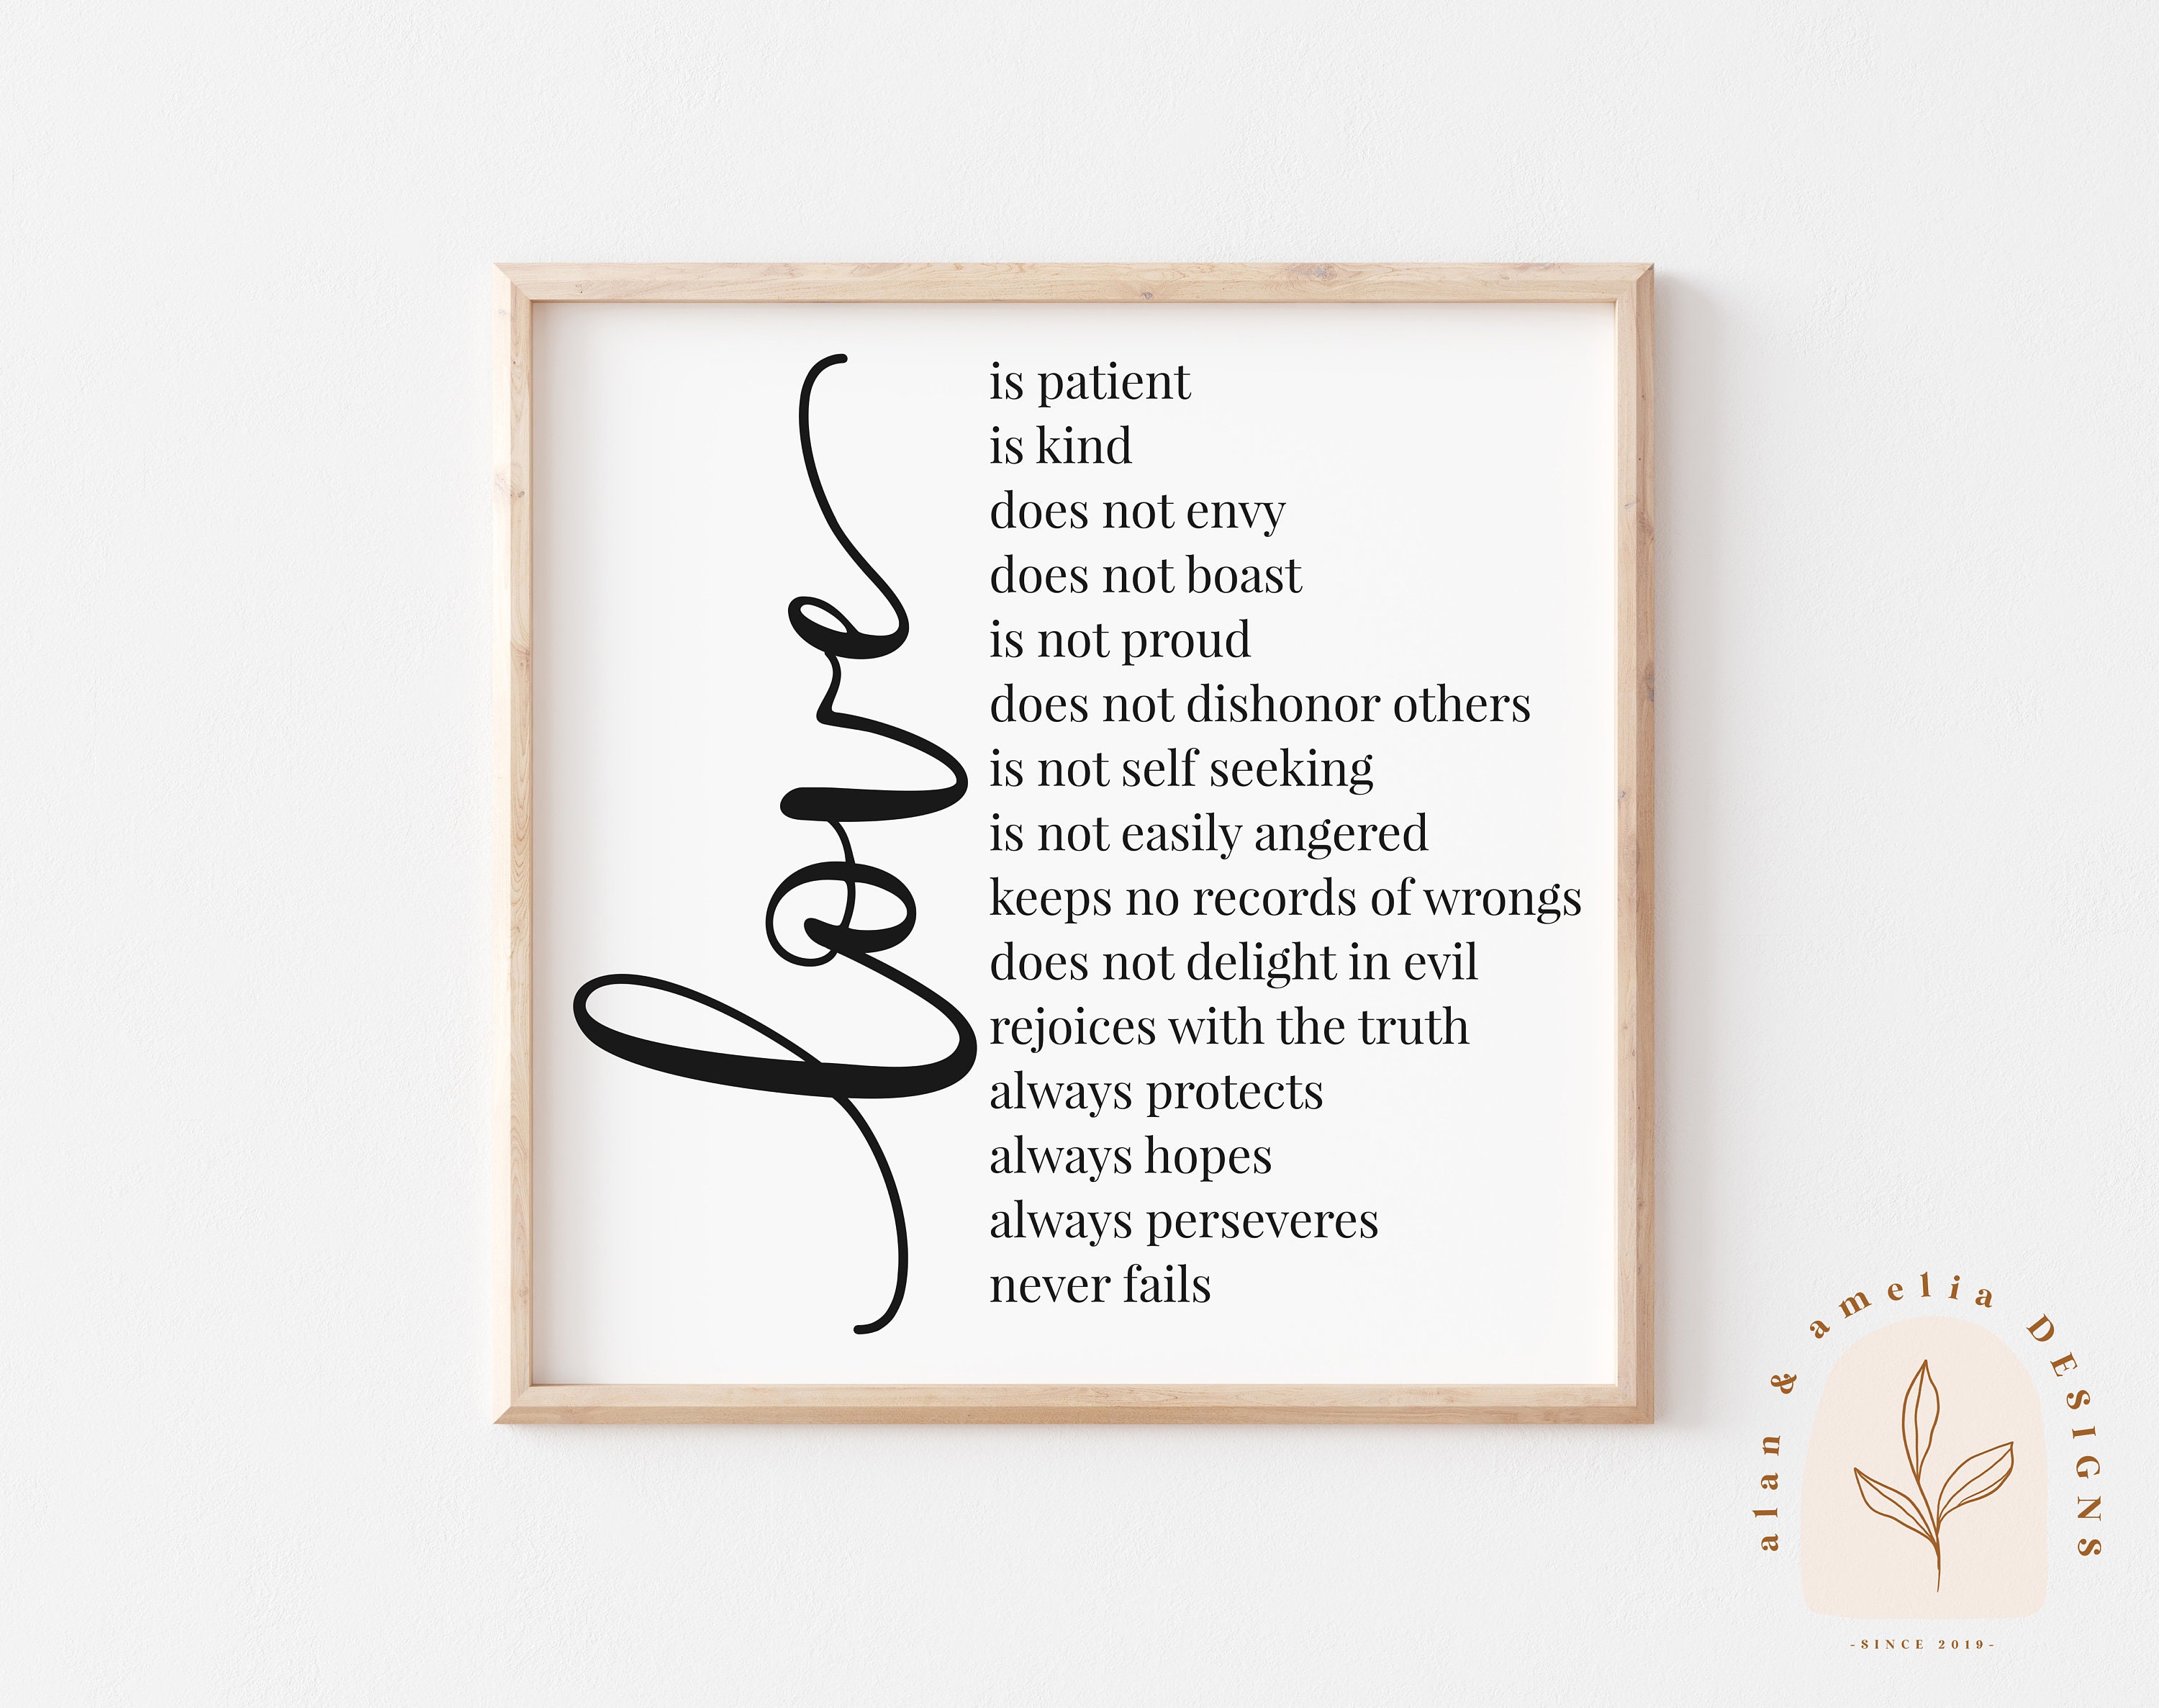 love
is patient
is kind
does not envy
does not boast
is not proud
does not dishonor others
is not self seeking
is not easily angered
keeps no records of wrongs
does not delight in evil
rejoices with the truth
always protects
always hopes
always perseveres
never fails
alan & amelia DESIGNS
-SINCE 2019-